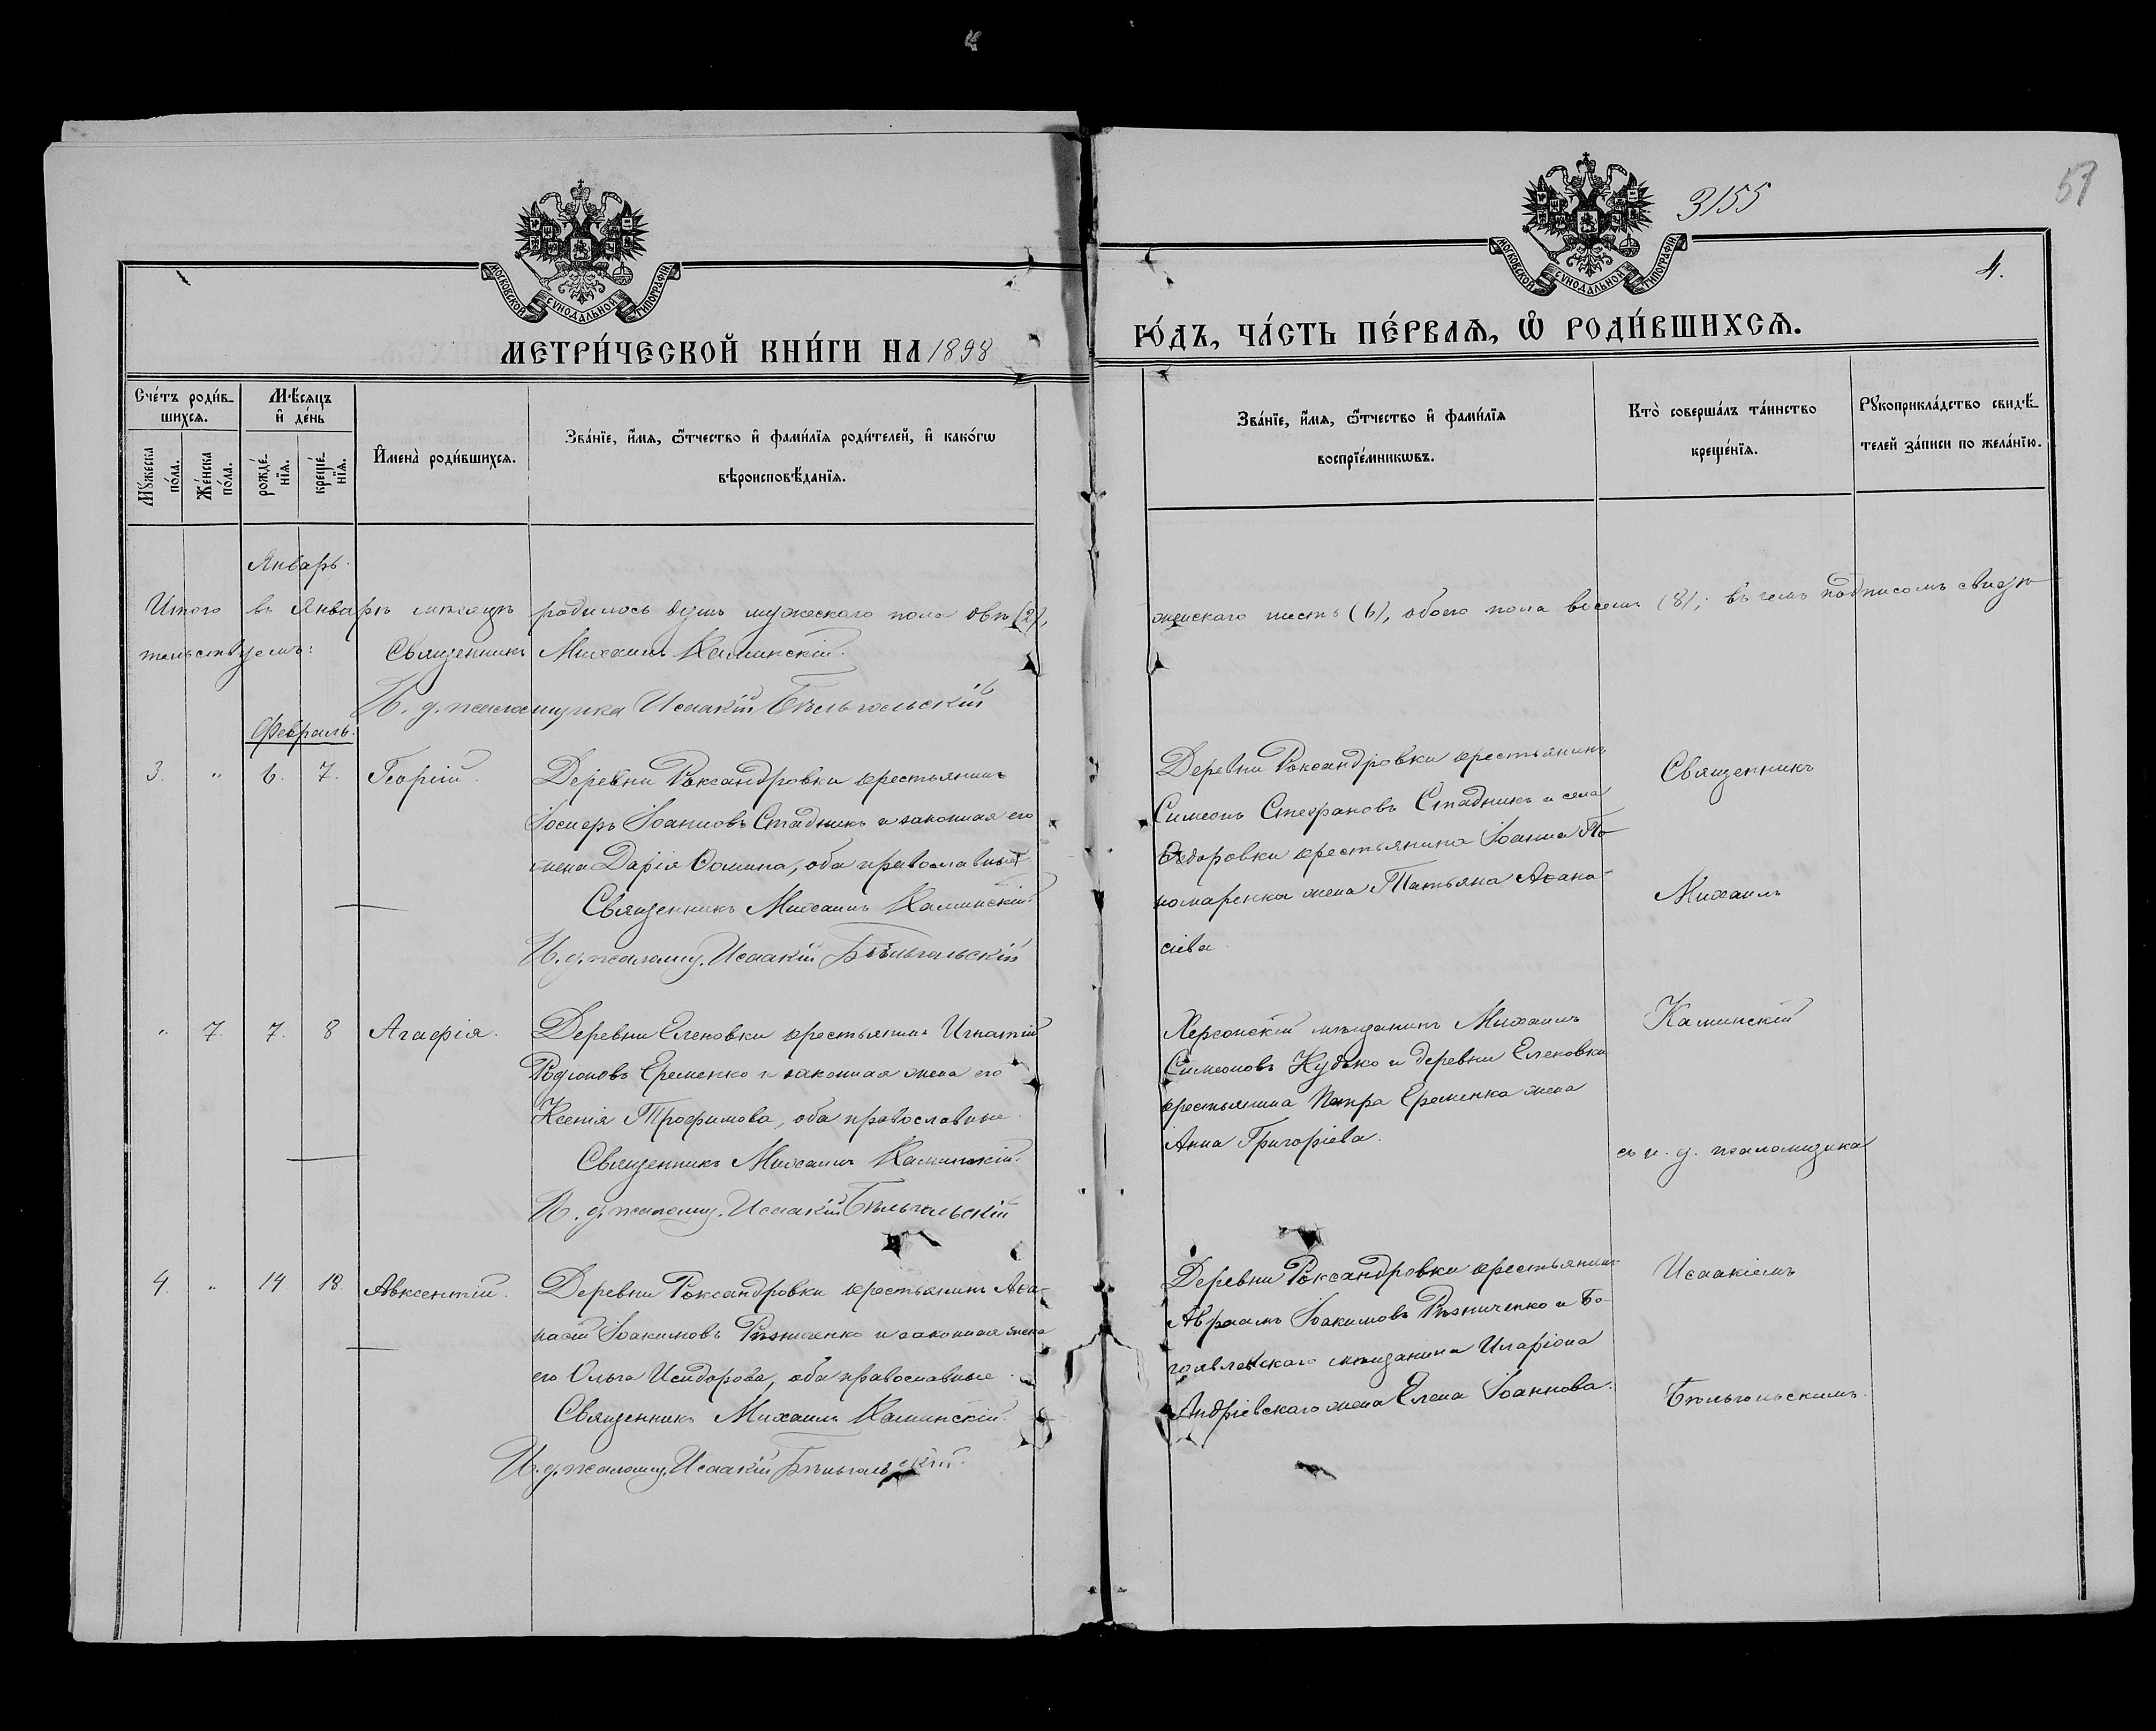 3155
57
4.
МОСКОВСКОЙ СУНОДАЛЬНОЙ ТИПОГРАФІИ
МОСКОВСКОЙ СУНОДАЛЬНОЙ ТИПОГРАФІИ
МЕТРИ́ЧЕСКОЙ КНИ́ГИ НА 1898
ГО́ДЪ, ЧА́СТЬ ПЕ́РВАѦ, Ѡ҆ РОДИ́ВШИХСѦ.
Сче́тъ роди́в-
шихсѧ.
Мꙋ́жеска по́ла.
Же́нска по́ла.
Мѣ́сѧцъ
и҆ де́нь
рожде́-нїѧ.
креще́-нїѧ.
И҆мена̀ роди́вшихсѧ.
Зва́нїе, и҆́мѧ, ѻ҆́тчество и҆ фами́лїѧ роди́телей, и҆ како́гѡ
вѣроисповѣ́данїѧ.
Зва́нїе, и҆́мѧ, ѻ҆́тчество и҆ фами́лїѧ
воспрїе́мникѡвъ.
Кто̀ соверша́лъ та́инство
креще́нїѧ.
Рꙋкоприкла́дство свидѣ́-
телей за́писи по жела́нїю.
Январь.
Итого въ Январѣ мѣсяцѣ родилось душъ мужескаго пола двѣ (2), женскаго шесть (6), обоего пола восемь (8); въ чемъ подписомъ свидѣ-
тельствуемъ: Священникъ Михаилъ Каминскій.
И. д. псаломщика Исаакій Бѣльгольскій
Февраль.
3. " 6. 7. Георгій.
Деревни Роксандровки крестьянинъ
Іосифъ Іоанновъ Стадникъ и законная его
жена Дарія Фомина, оба православные.
Священникъ Михаилъ Каминскій.
И. д. псаломщ. Исаакій Бѣльгольскій
Деревни Роксандровки крестьянинъ
Симеонъ Стефановъ Стадникъ и села
Ѳедоровки крестьянина Іоанна По-
номаренка жена Татьяна Аѳана-
сіева
Священникъ
Михаилъ
" 7. 7. 8 Агафія.
Деревни Еленовки крестьянинъ Игнатій
Родіоновъ Еременко и законная жена его
Ксенія Трофимова, оба православные.
Священникъ Михаилъ Каминскій.
И. д. псаломщ. Исаакій Бѣльгольскій
Херсонскій мѣщанинъ Михаилъ
Симеоновъ Кубко и деревни Еленовки
крестьянина Петра Еременка жена
Анна Григоріева.
Каминскій
съ и. д. псаломщика
4. " 14 18. Авксентій.
Деревни Роксандровки крестьянинъ Аѳа-
насій Іоакимовъ Рѣзниченко и законная жена
его Ольга Исидорова, оба православные.
Священникъ Михаилъ Каминскій.
И. д. псаломщ. Исаакій Бѣльгольскій.
Деревни Роксандровки крестьянинъ
Авраамъ Іоакимовъ Рѣзниченко и Бо-
гоявленскаго мѣщанина Иларіона
Андріевскаго жена Елена Іоаннова.
Исаакіемъ
Бѣльгольскимъ.